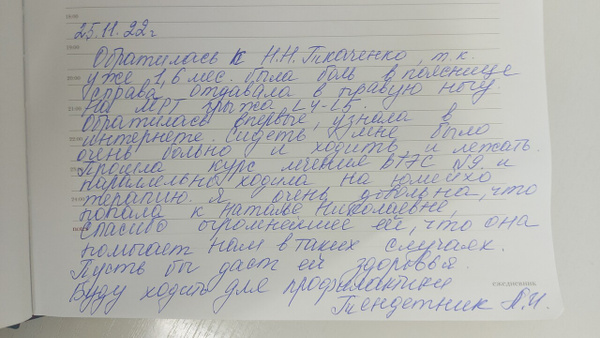 25.11.22г
Обратилась к Н.Н.Ткаченко, т.к.
уже 1,6 мес. была боль в пояснице
справа отдавала в правую ногу.
На МРТ грыжа L4-L5.
Обратилась впервые, узнала в
интернете. Сидеть мне было
очень больно и ходить, и лежать.
Прошла курс лечения ВТЭС №9 и
параллельно ходила на юмейхо
терапию. Я очень довольна, что
попала к Наталье Николаевне,
спасибо огромнейшее ей, что она
помогает нам в таких случаях.
Пусть бы даст ей здоровья.
Буду ходить для профилактики
Тендетник П.И.
ЕЖЕДНЕВНИК